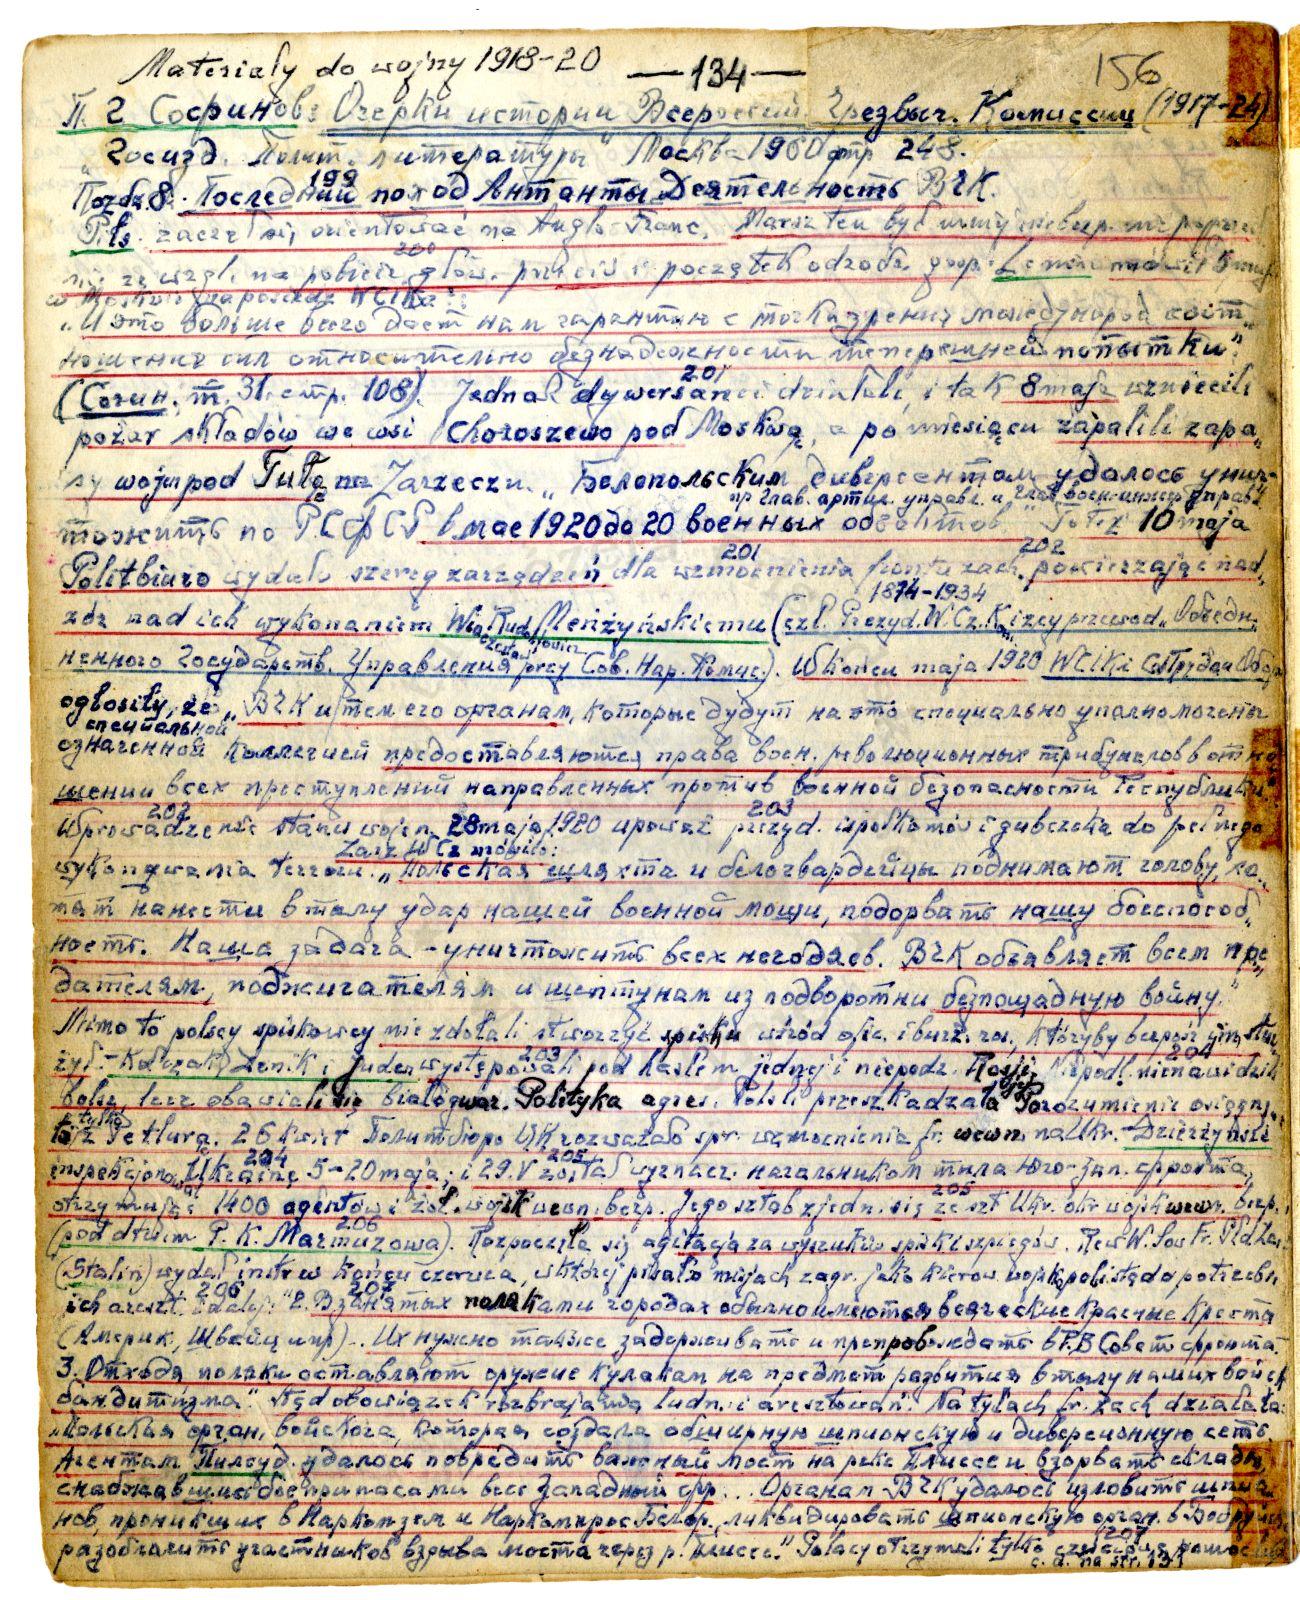 Materiały do wojny 1918-20 —134— 156
П. Г Софинов: Очерки истории Всероссий. Чрезвыч. Комиссии (1917-24)
"Госизд. Полит. литературы" Москва 1960 стр 248.
199
8. Последний поход Антанты. Деятельность ВЧК.
Piłs. zaczął się orientować na Anglo-Franc. Marsz ten był
200
ze wzgl. na pobicie głów. przeciw. i początek odrodz. gosp. Lenin mówił 5 maja
w Moskwie na posiedz WCIKa:
"И это больше всего дает нам гарантию с точки зрения международ. соот„
ношения сил относительно безнадежности теперешней попытки".
201
(Сочин. т. 31. стр. 108). Jednak dywersanci działali, i tak 8 maja wzniecili
pożar składów we wsi Choroszewo pod Moskwą, a po miesiącu zapalili zapa„
sy wojen pod Tułą na Zarzeczu. "Белопольским диверсентам удалось унич-
пр Глав. артил. управл. и Глав. воен-инжен управл.
тожить по РСФСР в мае 1920 до 20 военных обектов" Toteż 10 maja
201 202
Politbiuro wydało szereg zarządzeń dla wzmocnienia frontu zach. powierzając nad„
1874-1934
zór nad ich wykonaniem Wiaczesław Rudolfowicz Menżyńskiemu (czł. Prezyd. W.Cz.K.
ненного Государств. Управления przy Сов. Нар. Комис.). W końcu maja 1920 WCIK i
ogłosiły, że "ВЧК и тем его органам, которые будут на это специально уполномочены
специальной
означенной Коллегией предоставляются права воен. революционных трибуналов в отно
шении всех преступлений направленных против военной безопасности Республики."
202 203
Wprowadzenie stanu wojen. 28 maja 1920 upoważ prezyd. ispołkomów i gubczeka do pełnego
Zarz WCz mówiło:
wykonywania terroru. "Польская шляхта и белогвардейцы поднимают голову, хо„
тят нанести в тылу удар нашей военной мощи, подорвать нашу боеспособ„
ность. Наша задача - уничтожить всех негодяев. ВЧК объявляет всем пре„
дателям, поджигателям и шептунам из подворотни безпощадную войну."
Mimo to polscy spiskowcy nie zdołali stworzyć spisku wśród ofic. i burż. ros., któryby
203 204
żył - Kołczak, Denik i Juden występowali pod hasłem jednej i niepodz. Rosji. Niepodl. nienawidzili
bolsz, lecz obawiali się białogwar. Polityka agres. Polski przeszkadzała jej. Porozumienie osiągnę„
tylko
to z Petlurą. 26 kwiet Полит-бюро ЦК rozważało spr. wzmocnienia fr. wewn. na Ukr. - Dzierżyński
204 205
inspekcjonował Ukrainę 5-20 maja, i 29.V został wyznacz. начальником тыла Юго-зап. фронта,
205
otrzymując 1400 agentów i żoł. wojsk wewn. bezp. Jego sztab zjedn. się ze szt Ukr. okr wojsk wewn. bezp.,
206
(pod dtwem P. K. Marmuzowa). Rozpoczęła się agitacja za wyszukiw. spisk i szpiegów. Rew W. Sow Fr. Płd Zach
(Stalin) wydał instr w końcu czerwca, w której pisał o misjach zagr. jako kierow. wojsk pol. stąd potrzebn
206 207
ich areszt. i dalej: "2. В занятых поляками городах обычно имеются всяческие красные кресты
(Америк, Швейц и пр)... Их нужно также задерживать и препровождать в Р.В Совет фронта.
3. Отходя поляки оставляют оружие кулакам на предмет развития в тылу наших войск
бандитизма". Stąd obowiązek rozbrajania ludn. i aresztowań. Na tyłach fr. Zach działała:
"Польская орган. войскова, которая создала обширную шпионскую и диверсионную сеть.
Агентам Пилсуд. удалось повредить важный мост на реке Плиссе и взорвать склады,
снабжавшие боеприпасами весь Западный фр... Органам ВЧК удалось изловить шпио
нов, проникших в Наркомзем и Наркомпрос Белор., ликвидировать шпионскую орган. в Бобруйске,
207
разоблачить участников взрыва моста через р. Плиссе." Polacy otrzymali tylko częściową pomoc
c. d. na str. 131